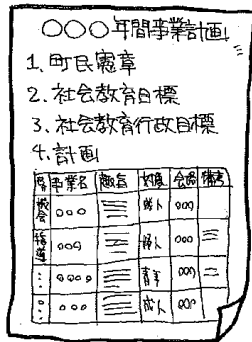 ○○○年間事業計画
1. 町民憲章
2. 社会教育目標
3. 社会教育行政目標
4. 計画
事業名 趣旨 対象 会場 備考
○○○ 婦人 ○○○
○○○ 婦人 ○○○
○○○○ 青年 ○○○
○○○ 成人 ○○○